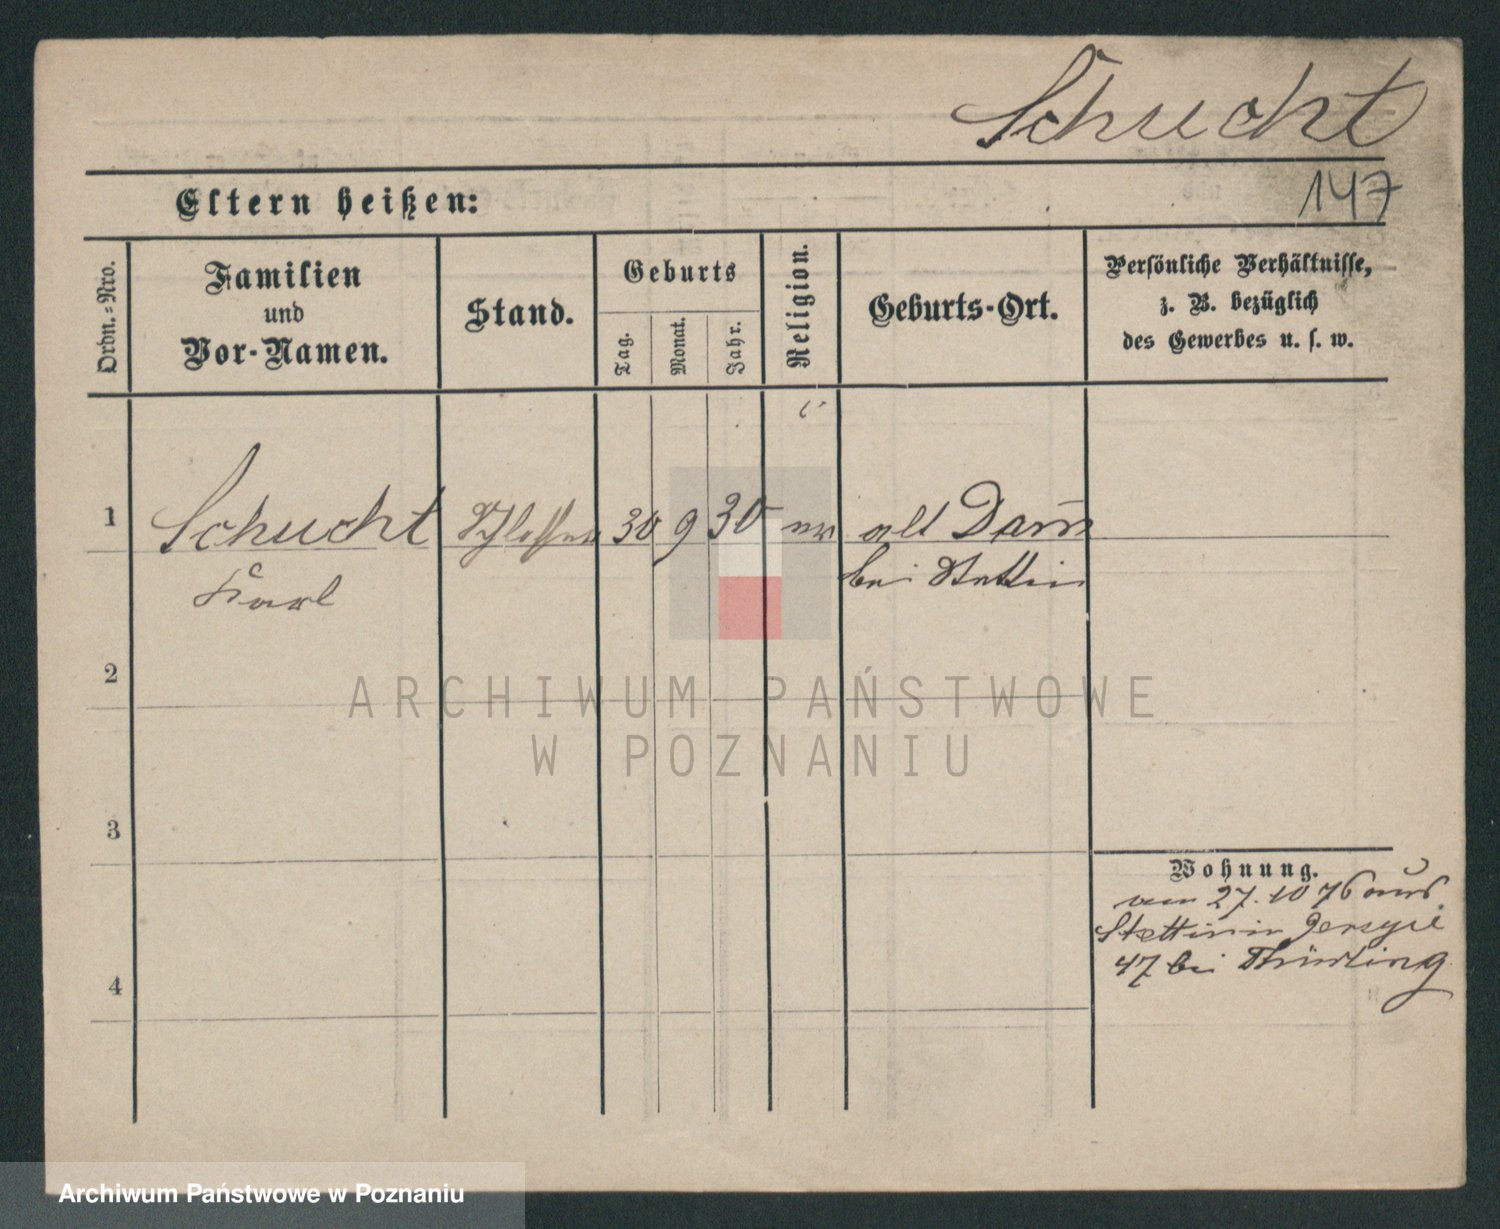 Schucht
147
Eltern heißen:
Ordn.-Nro.
Familien
und
Vor-Namen.
Stand.
Geburts
Tag.
Monat.
Jahr.
Religion.
Geburts-Ort.
Persönliche Verhältnisse,
z. B. bezüglich
des Gewerbes u. s. w.
1
Schucht
Schlosser
30
9
30
ev
alt Dam̄
Karl
bei Stettin
2
ARCHIWUM PAŃSTWOWE
W POZNANIU
3
Wohnung.
27.10 76 aus
Stettin in Jersyce
47 bei Thürling
4
Archiwum Państwowe w Poznaniu